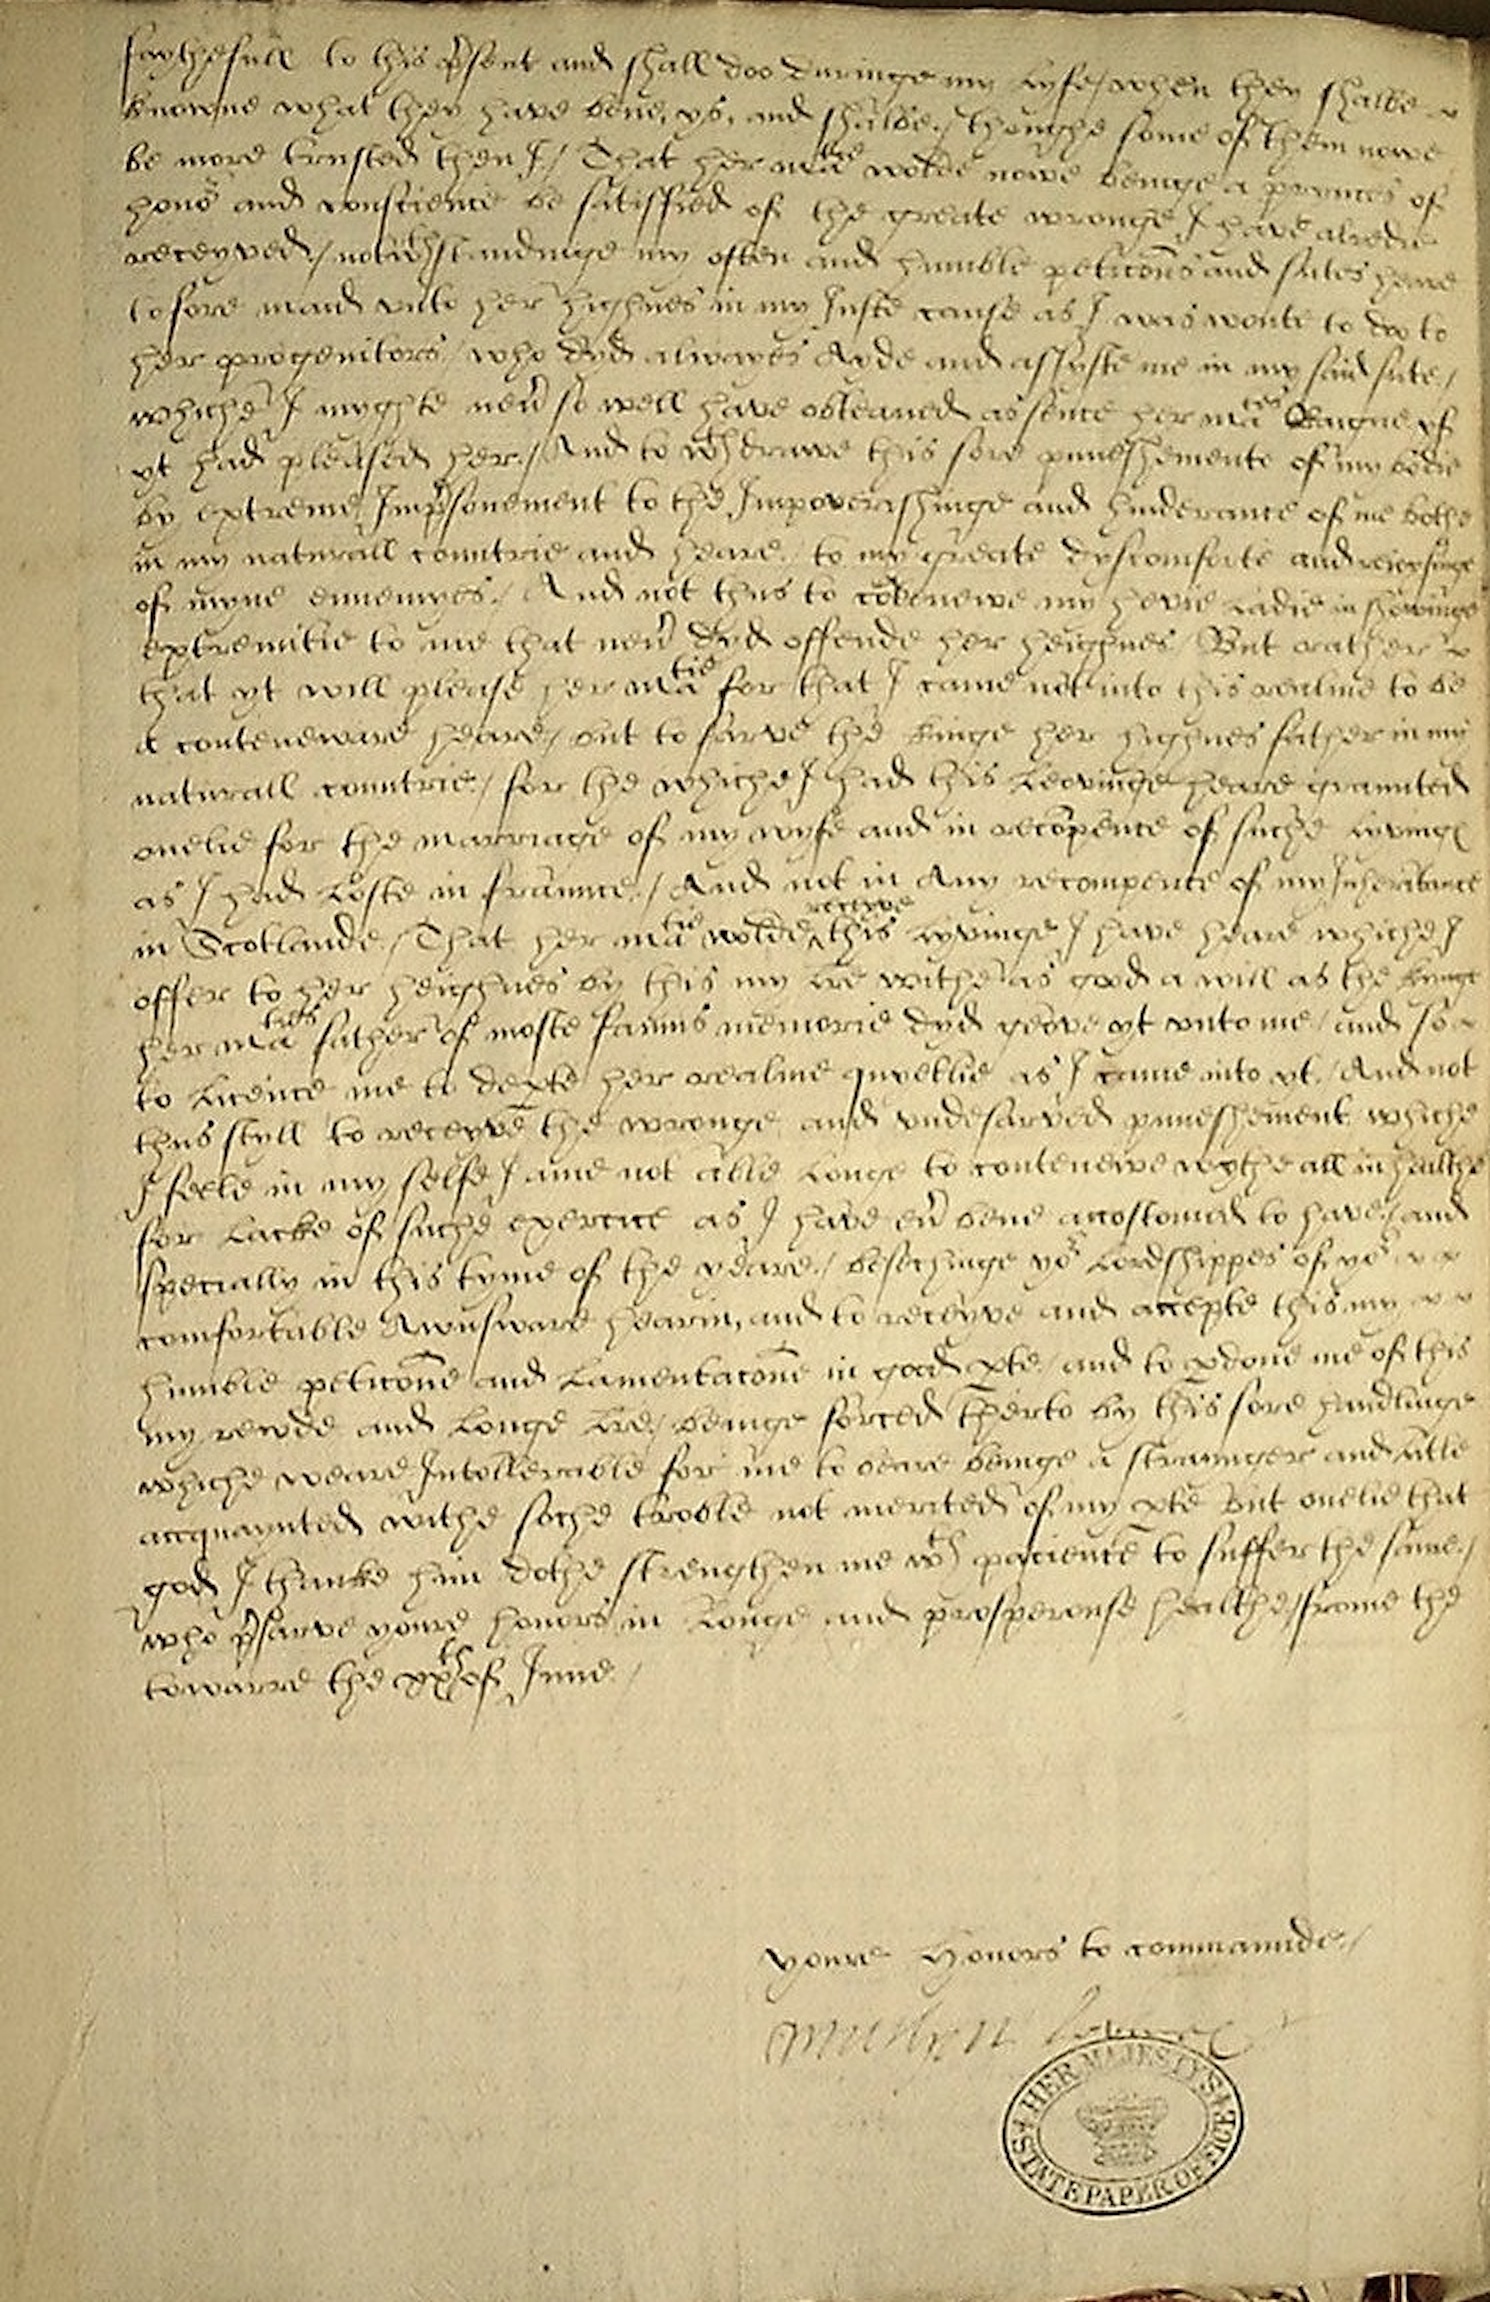 faythefull to this p'sent and shall doo duringe my lyfe / when they shalbe
knowne what they have bene, ys, and shalbe, / thoughe some of them nowe
be more trusted then I / That her ma^tie wolde nowe beinge a prynces of
hono^r and conscience be satisffied of the greate wronge I have alredie
receyved, / notw^thstandinge my often and humble peticons and sutes heare
tofore maid unto her highnes in my Juste cause as I was wonte to do to
her progenitors / who dyd alwayes Ayde and assyste me in my said sute, /
whiche I myghte nev' so well have obteaned as sence her ma^ties Raigne yf
yt had pleased her, / And to w^thdrawe this sore puneshemente of my bodie
by extreme Imp'sonement to the Impoverishinge and hinderance of me bothe
in my naturall countrie and heare, / to my greate dyscomforte and rejoysinge
of myne ennemyes. / And not thus to contenewe my hevie Ladie in shewinge
extremitie to me that nev' dyd offende her heighnes / But rather
that yt will please her ma^tie for that I came not into this realme to be
a conteneware heare, / but to sarve the kinge her highnes father in my
naturall countrie, / for the whiche I had this Leovinge heare graunted
onelie for the marriage of my wyfe and in recompence of suche Lyvinges
as I had Loste in fraunce, / And not in Any recompence of my Inheritance
in Scotlande, / That her ma^tie wolde ^receyve this Lyvinge I have heare whiche I
offer to her heighnes by this my lre withe as good a will as the kinge
her ma^ties father of moste famus memorie dyd geove yt unto me / and so
to Licence me to dep'te her realme quyetlie as I came into yt. / And not
thus styll to receyve the wronge and undesarved puneshement whiche
I feele in my selfe I ame not able Longe to contenewe wythe all in healthe
for Lacke of suche exercice as I have ev' bene accostomed to have, / and
specially in this tyme of the yeare, / besechinge yo^r Lordshippes of yo^r
comfortable Awnsware hearin, and to receyve and accepte this my
humble peticone and Lamentacone in good p'te, / and to p'done me of this
my rewde and Longe lre, / beinge forced therto by this sore handlinge
whiche weare Intollerable for me to beare beinge a straunger and litle
accquaynted withe soche troble not merited of my p'te But onelie that
god I thanke him dothe strengthen me w^th patience to suffer the same, /
who p'sarve youre honors in Longe and prosperouse healthe / frome the
towarre the xx^th of June. /
youre Honors to commaunde, /
mathew Lenox
HER MAJESTY'S
STATE PAPER OFFICE